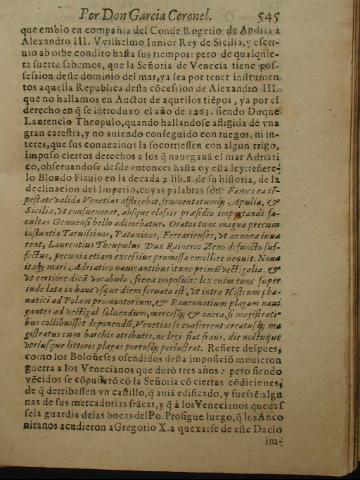 Por Don Garcia Coronel. 545
que embio en compañia del Conde Rogerio de Andria a
Alexandro III. Vvilhelmo Iunior Rey de Sicilia, y escri-
uio ab orbe condito hasta sus tiempos: pero de qualquie-
ra suerte sabemos, que la Señoria de Venecia tiene pos-
session deste dominio del mar, ya sea por tener instrumen
tos aquella Republica desta cõcession de Alexandro III.
que no hallamos en Auctor de aquellos tiẽpos, ya por el
derecho en q̃ se introduxo el año de 1263. siendo Duque
Laurencio Theopulo, quando hallandose afligida de vna
gran carestia, y no auiendo conseguido con ruegos, ni in-
teres, que sus conuezinos la socorriessen con algun trigo,
impuso ciertos derechos a los q̃ nauegauã el mar Adriati
co, obseruandose desde entonces hasta oy esta ley: refiere-
lo Blondo Flauio en la decada 2. lib. 8. de su historia, de la
declinacion del Imperio, cuyas palabras son: Fames ea tẽ-
pestate valida Venetias affligebat, frumentatumq́; Apulia, &
Sicilia, vt consueuerat, absque eloisis præsidio importandi fa-
cultas Genuensi bello adimebatur. Oratos tunc magna precum
instantia Taruisinos, Patauinos, Ferrarienses, vt annona inua
rent, Laurentius Theupulus Dux Rainerio Zeno defuncto suf-
fectus, pecunia etiam excessiue promissa emollire nequit. Noua
itaq́; mari Adriatico nauigantibus tunc primũ vectigalia, &
vt certiore dicã vocabulo, frena imposuit: lex enim tunc super
inde lata in hanc vsque diem seruata est, vt intra Histrum pha-
natici ad Polam promuntorium, & Rauennatium plagam naui
gantes ad vectigal soluendum, merces q́; & onera, si magistrati-
bus collibuisset deponendũ, Venetias se conferrent creatus q́; ma
gistratus cum barchis atributis, ne legi fiat fraus, die noctuque
veriusque littoris plagas portus q́; perlustrat. Refiere despues,
como los Boloñeses ofendidos desta imposiciõ mouieron
guerra a los Venecianos que durò tres años: pero siendo
vẽcidos se cõpusierõ cõ la Señoria cõ ciertas cõdiciones,
de q̃ derribassen vn castillo, q̃ auiã edificado, y fuessẽ algu
nas de sus mercadurias frãcas, y q̃ à los Venecianos quedas
se la guardia de las bocas del Po. Prosigue luego, q̃ los Anco
nitanos acudieron a Gregorio X. a quexarse de este Dacio
im-